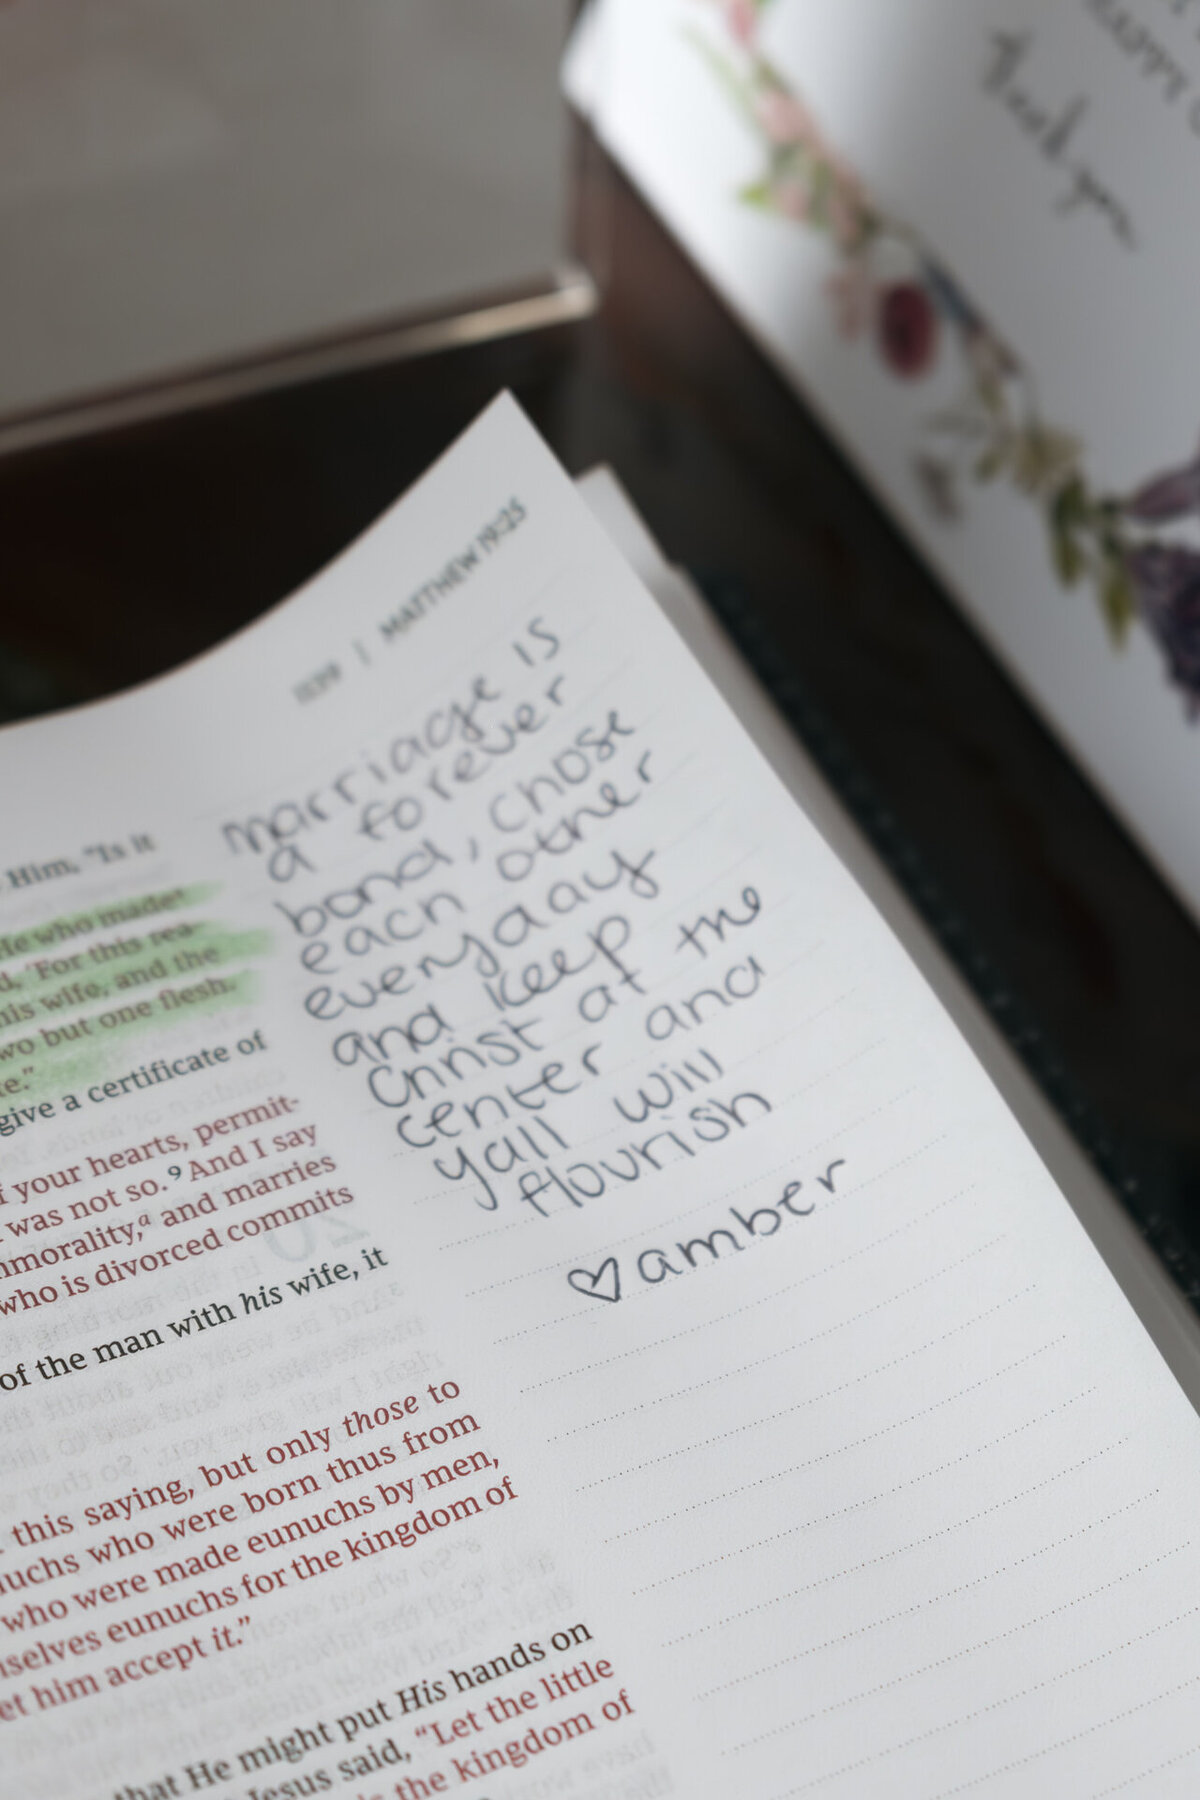 Thank you
1139 | MATTHEW 19:25
marriage is
a forever
bond, chose
each other
everyday
and keep
Christ at the
center and
yall will
flourish
♡ amber
Him, "Is it
He who made
'For this rea-
his wife, and the
two but one flesh.
give a certificate of
your hearts, permit-
was not so. 9 And I say
and marries
who is divorced commits
of the man with his wife, it
this saying, but only those to
who were born thus from
who were made eunuchs by men,
eunuchs for the kingdom of
let him accept it."
that He might put His hands on
Jesus said, "Let the little
the kingdom of